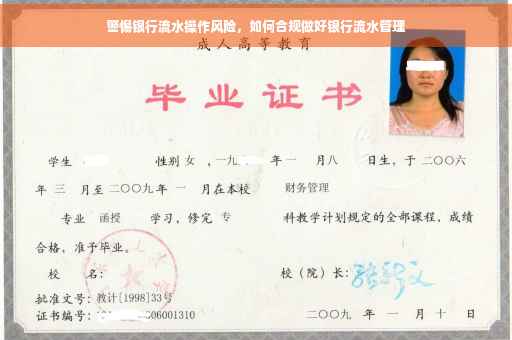 警惕银行流水操作风险，如何合规做好银行流水管理
成人高等教育
毕业证书
学生 性别 女 ，一九 年 一 月八 日生，于 二〇〇六
年 三 月至 二〇〇九 年 一 月在本校 财务管理
专业 函授 学习，修完 专 科教学计划规定的全部课程，成绩
合格，准予毕业。
校 名： 校（院）长：
批准文号：教计[1998]33号
证书编号： 06001310 二〇〇九 年 一 月 十 日